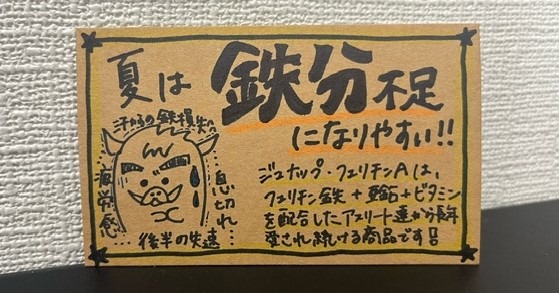 夏は
鉄分不足
になりやすい!!
汗からの鉄損失へ
疲労感…
息切れ…
後半の失速
ジュナップ・フェリチンAは、
フェリチン鉄+亜鉛+ビタミン
を配合したアスリート達から長年
愛され続ける商品です!!